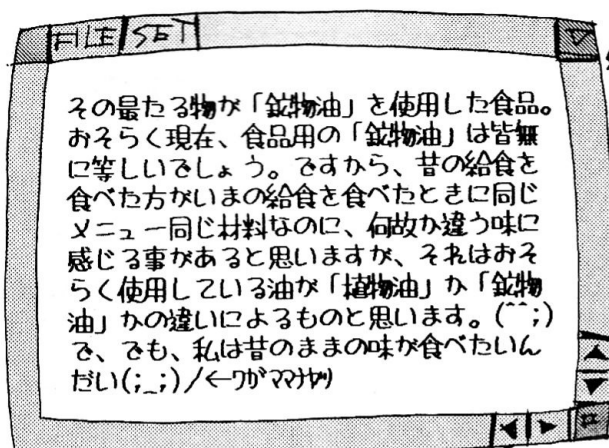 FILE SET
その最たる物が「鉱物油」を使用した食品。
おそらく現在、食品用の「鉱物油」は皆無
に等しいでしょう。ですから、昔の給食を
食べた方がいまの給食を食べたときに同じ
メニュー同じ材料なのに、何故か違う味に
感じる事があると思いますが、それはおそ
らく使用している油が「植物油」か「鉱物
油」かの違いによるものと思います。(^^;)
で、でも、私は昔のままの味が食べたいん
だい(;_;)/←ワガママナヤツ